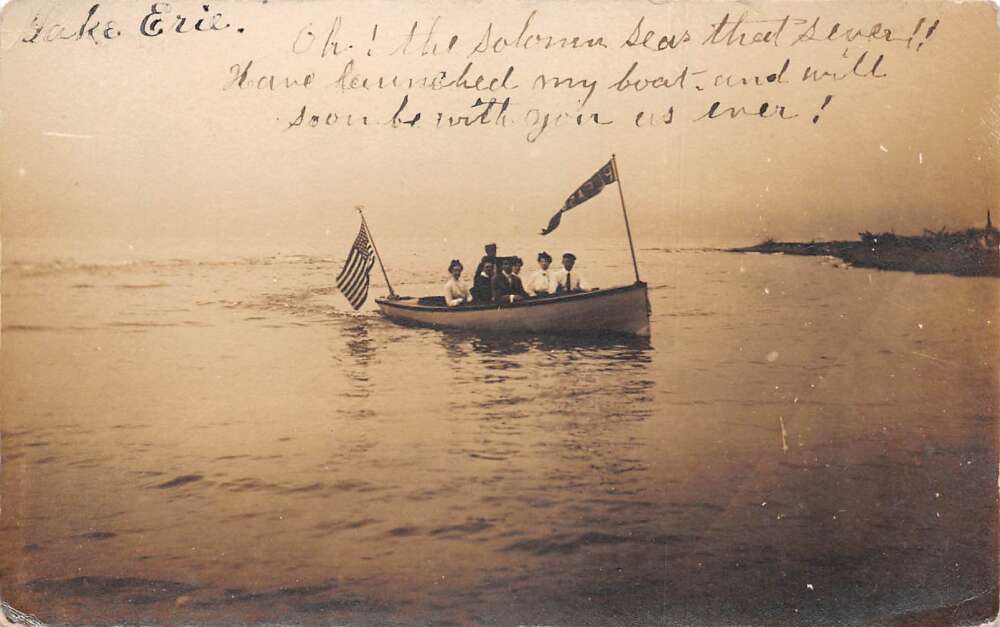 Lake Erie.
Oh! the solomn seas that sever!!
Have launched my boat and will
soon be with you as ever!